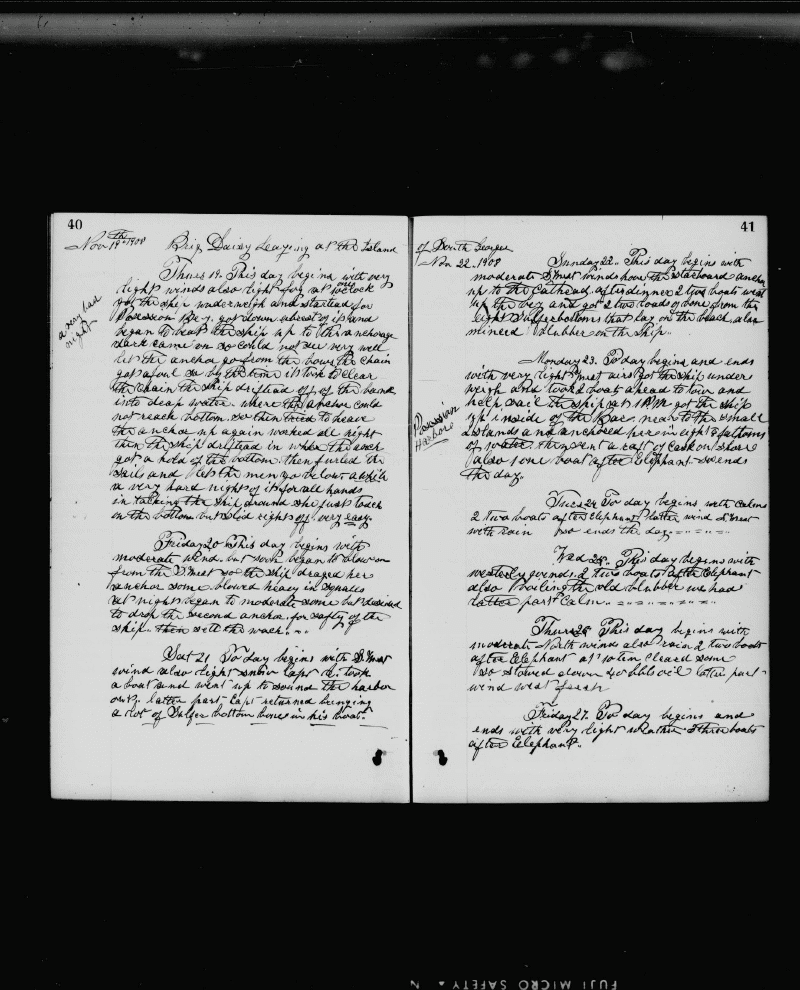 40
Nov 19th 1908 Brig Daisy Laying at the Island
Thurs 19. This day begins with very
light winds also light fog at one oclock
got the ship underweigh and started for
Posession Bay. got down abrest of it and
began to beat the ship up to the anchorage
dark came on so could not see very well
let the anchor go from the bows the chain
got afoul so by the time it took to clear
the chain the ship drifted off of the bank
into deap water. where the anchor could
not reach bottom. so then tried to heave
the anchor up again worked all night
then the ship drifted in where the anchor
got a hold of the bottom. then furled the
sails and let the men go below awhile
a very hard night of it for all hands
in tacking the ship around she just touch
on the bottom but slid right off very easy.
a very bad
night
Friday 20 This day begins with
moderate wind. but soon began to blow on
from the S West so the ship draged her
anchor some blowed heavy in squales
at night began to moderate some but decided
to drop the second anchor. for safty of the
ship. then sett the wach.
Sat 21 To day begins with S West
wind also light snow Capt took
a boat and went up to sound the harbor
out. latter part Capt returned bringing
a lot of Sulfer bottom bones in his boat.
41
of South Georgia
Nov 22. 1908
Sunday 22. This day begins with
moderate S West winds hove the starboard anchor
up to the Cathead. after dinner 2 two boats went
up the bay and got 2 two loads of bone from the
eight Sulferbottoms that lay on the beach. also
minced blubber on the ship.
Monday 23. To day begins and ends
with very light West airs got the ship under
weigh and took a boat ahead to tow and
help sail the ship at 1 P.M. got the ship
up inside of the Bar near to the small
islands and anchored her in eight 8 fathoms
of water. then sent a raft of Cask on shore
also 1 one boat after Elephant. so ends
the day.
Posession
Harbore
Tues 24 To day begins with Calms
2 two boats after Elephant latter wind S West
with rain so ends the day
Wed 25. This day begins with
westerly winds 2 two boats after Elephant
also boiling the old blubber we had
latter part Calm.
Thurs 26 This day begins with
moderate North wind also rain 2 two boats
after Elephant at so stowed down
latter part
wind west fresh
Friday 27. To day begins and
ends with very light weather 3 three boats
after Elephant.
FUJI MICRO SAFETY N